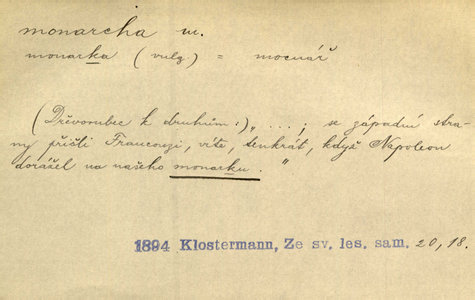 monarcha m.
monarka (vulg) = mocnář
(Dřevorubec k druhům:) „ ... ; se západní stra-
ny přišli Francouzi, víte, tenkrát, když Napoleon
dorážel na našeho monarku. "
1894 Klostermann, Ze sv. les. sam. 20, 18.